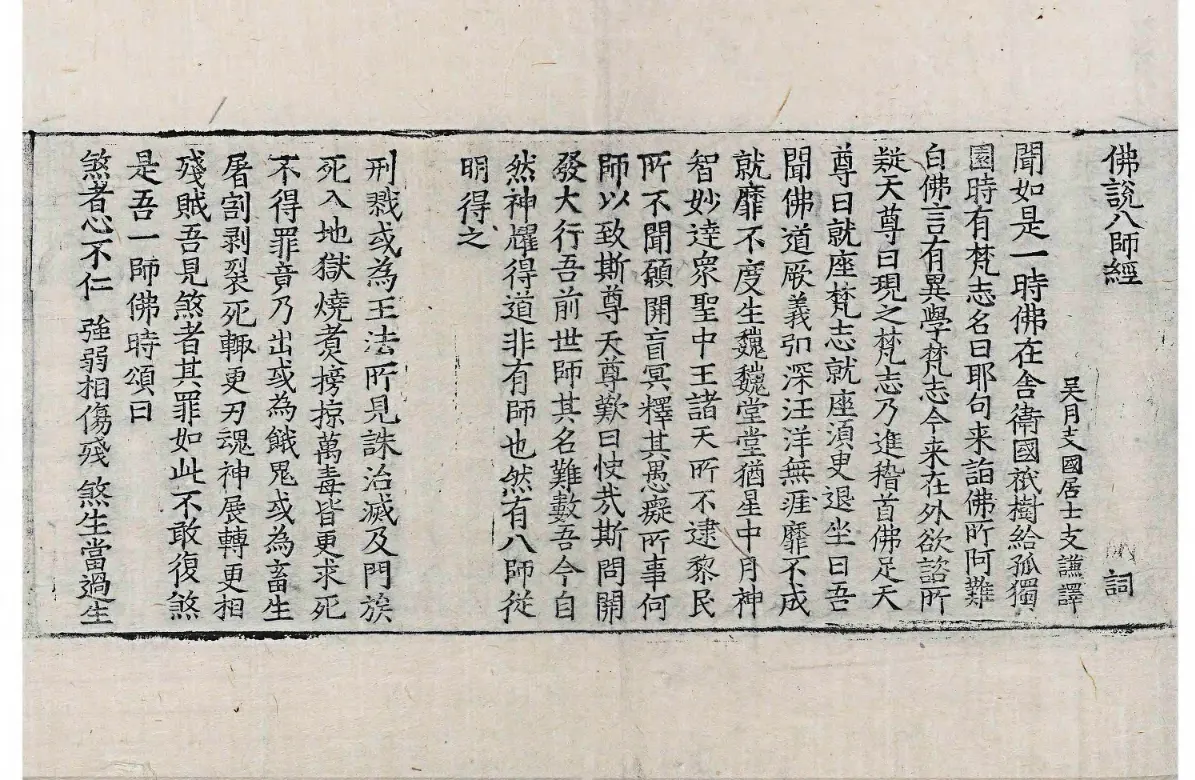 佛說八師經 詞
吳月支國居士支謙譯
聞如是一時佛在舍衛國祇樹給孤獨
園時有梵志名曰耶句来詣佛所阿難
白佛言有異學梵志今来在外欲諮所
疑天尊曰現之梵志乃進稽首佛足天
尊曰就座梵志就座須臾退坐曰吾
聞佛道厥義弘深汪洋無涯靡不成
就靡不度生巍巍堂堂猶星中月神
智妙達衆聖中王諸天所不逮黎民
所不聞願開盲冥釋其愚癡所事何
師以致斯尊天尊歎曰快㦲斯問開
發大行吾前世師其名難數吾今自
然神耀得道非有師也然有八師從
明得之
刑戮或為王法所見誅治滅及門族
死入地獄燒煮搒掠萬毒皆更求死
不得罪竟乃出或為餓鬼或為畜生
屠割剥裂死輒更刃魂神展轉更相
殘賊吾見煞者其罪如此不敢復煞
是吾一師佛時頌曰
煞者心不仁 強弱相傷殘 煞生當過生